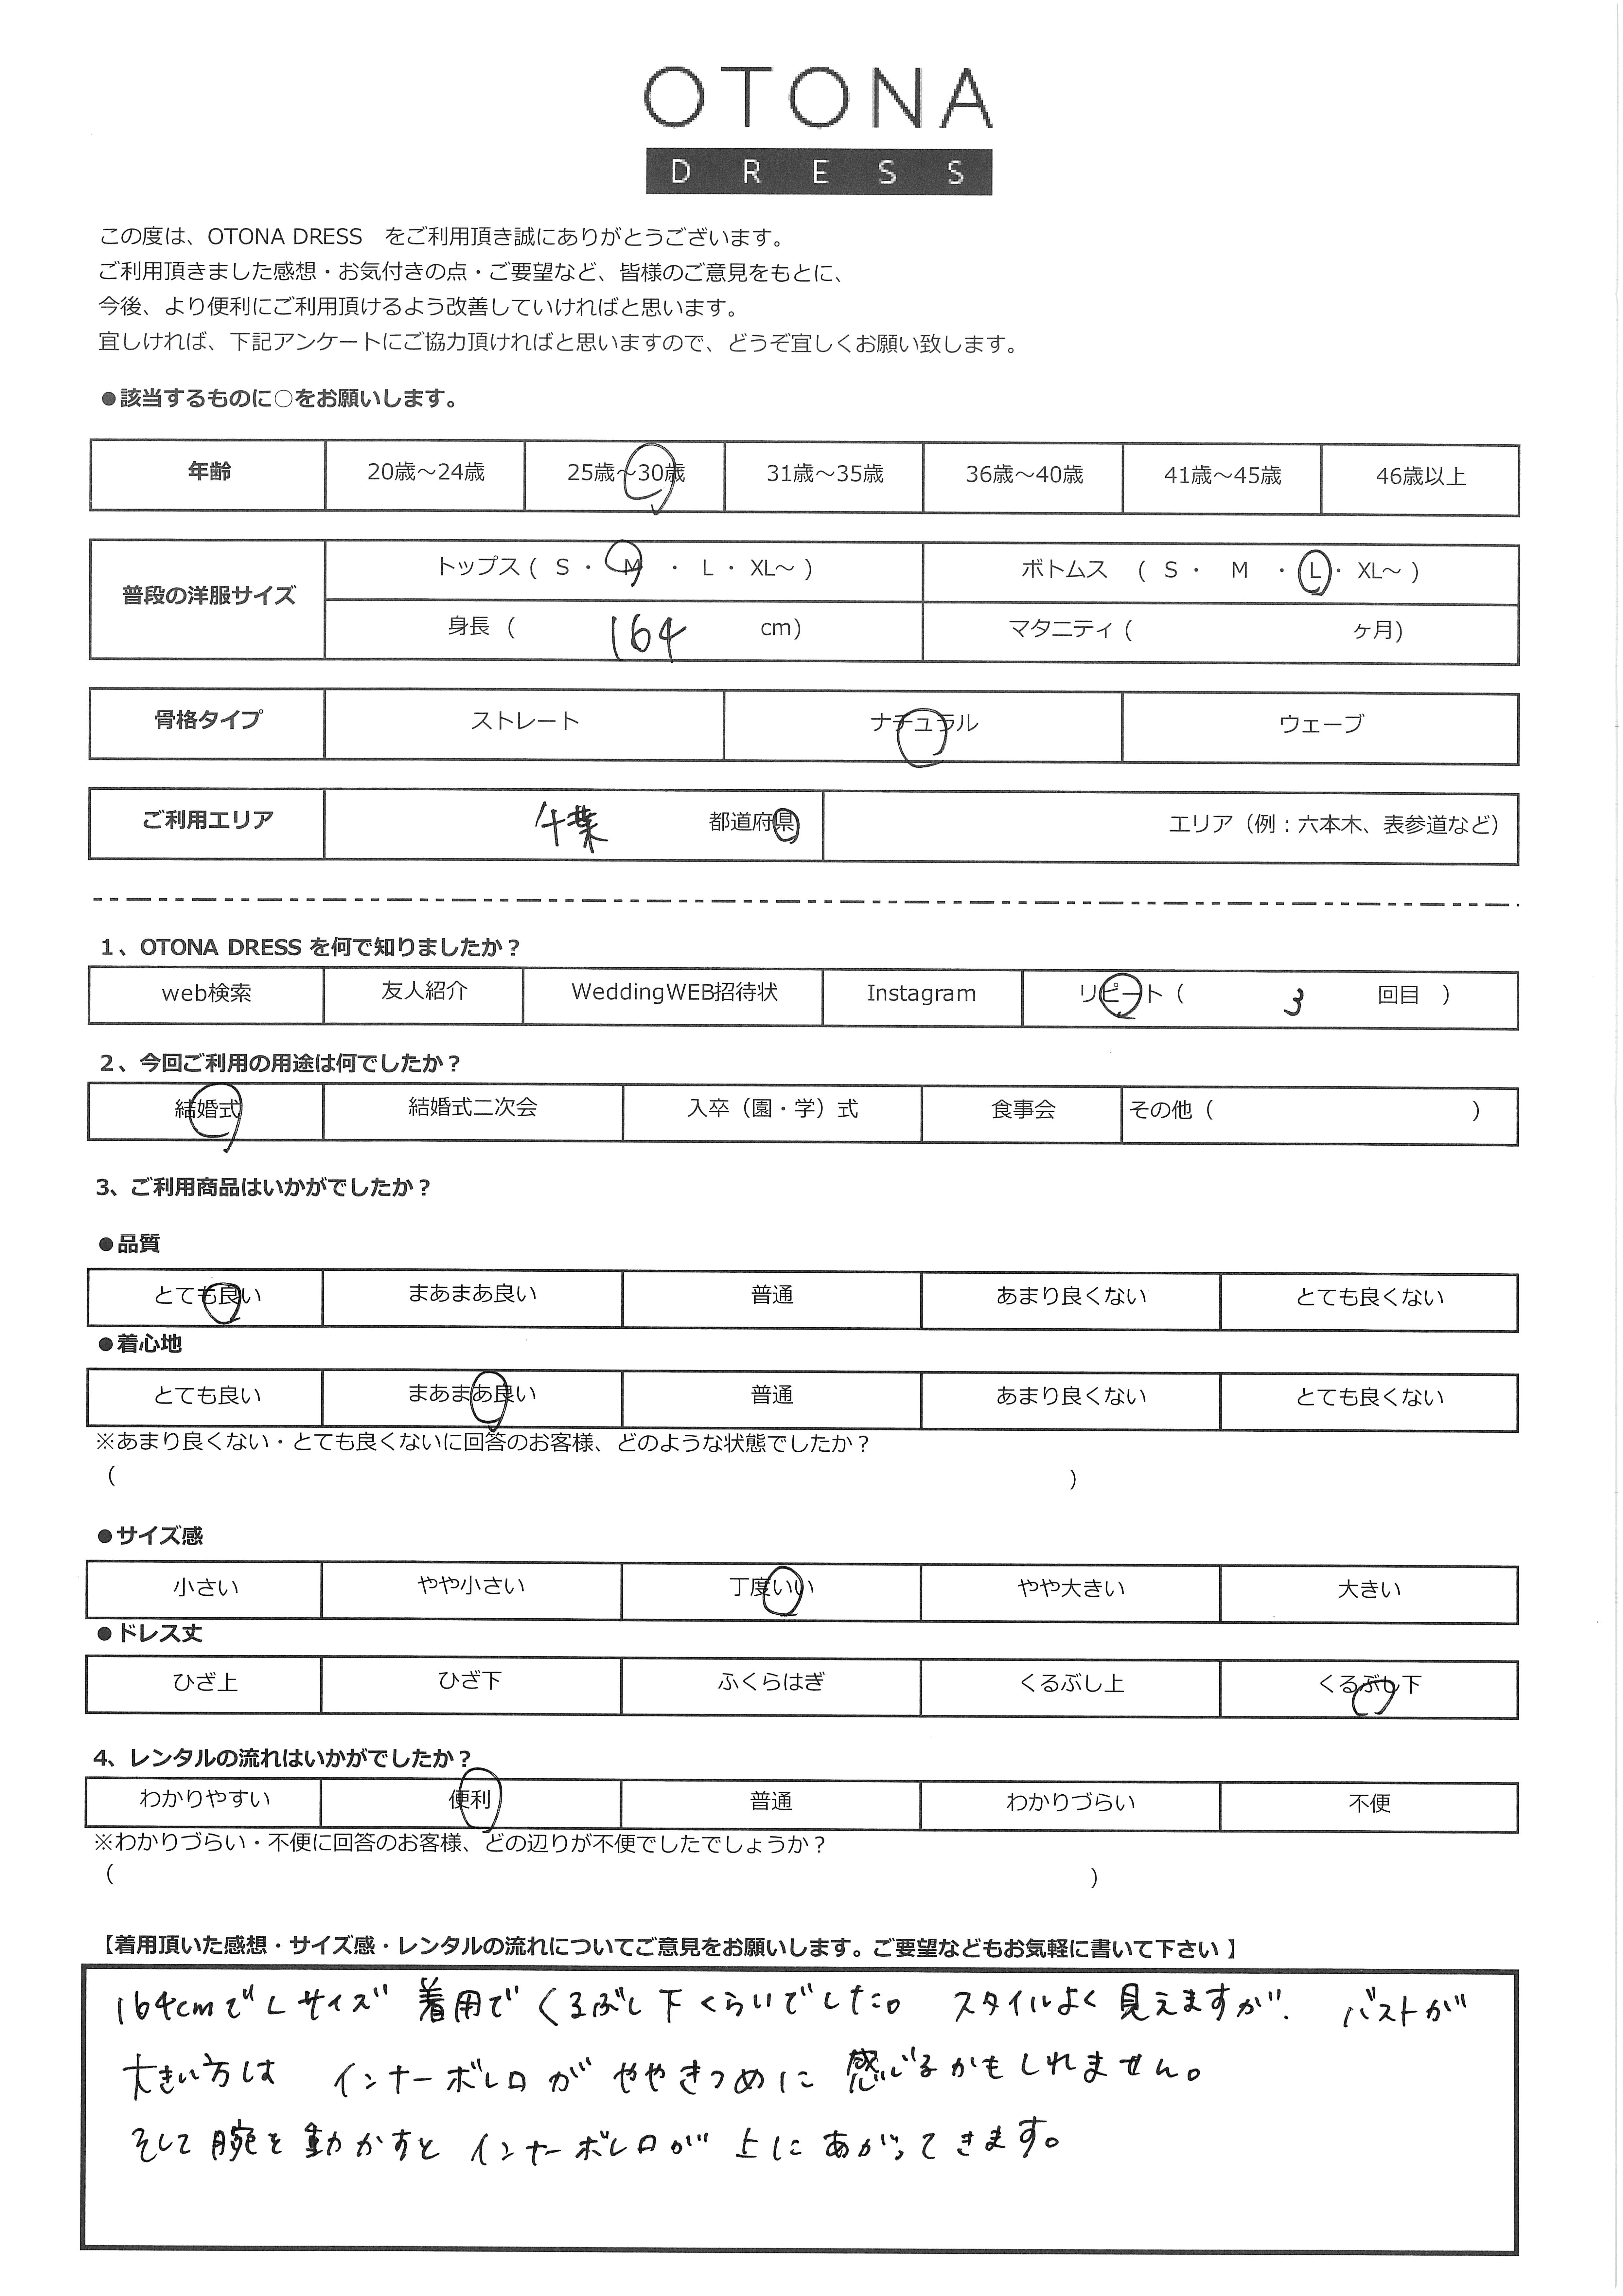 OTONA
DRESS
この度は、OTONA DRESS　をご利用頂き誠にありがとうございます。
ご利用頂きました感想・お気付きの点・ご要望など、皆様のご意見をもとに、
今後、より便利にご利用頂けるよう改善していければと思います。
宜しければ、下記アンケートにご協力頂ければと思いますので、どうぞ宜しくお願い致します。
●該当するものに○をお願いします。
年齢 20歳～24歳 25歳～30歳 31歳～35歳 36歳～40歳 41歳～45歳 46歳以上
普段の洋服サイズ トップス ( S ・ M ・ L ・ XL～ ) ボトムス ( S ・ M ・ L ・ XL～ )
身長 ( 164 cm) マタニティ ( ヶ月)
骨格タイプ ストレート ナチュラル ウェーブ
ご利用エリア 千葉 都道府県 エリア（例：六本木、表参道など）
1、OTONA DRESS を何で知りましたか？
web検索 友人紹介 WeddingWEB招待状 Instagram リピート（ 3 回目 ）
2、今回ご利用の用途は何でしたか？
結婚式 結婚式二次会 入卒（園・学）式 食事会 その他（ ）
3、ご利用商品はいかがでしたか？
●品質
とても良い まあまあ良い 普通 あまり良くない とても良くない
●着心地
とても良い まあまあ良い 普通 あまり良くない とても良くない
※あまり良くない・とても良くないに回答のお客様、どのような状態でしたか？
（ ）
●サイズ感
小さい やや小さい 丁度いい やや大きい 大きい
●ドレス丈
ひざ上 ひざ下 ふくらはぎ くるぶし上 くるぶし下
4、レンタルの流れはいかがでしたか？
わかりやすい 便利 普通 わかりづらい 不便
※わかりづらい・不便に回答のお客様、どの辺りが不便でしたでしょうか？
（ ）
【着用頂いた感想・サイズ感・レンタルの流れについてご意見をお願いします。ご要望などもお気軽に書いて下さい 】
164cmでLサイズ 着用で くるぶし下くらいでした。 スタイルよく 見えますが、 バストが
大きい方は インナーボレロが ややきつめに 感じるかもしれません。
そして腕を動かすと インナーボレロが 上に あがってきます。